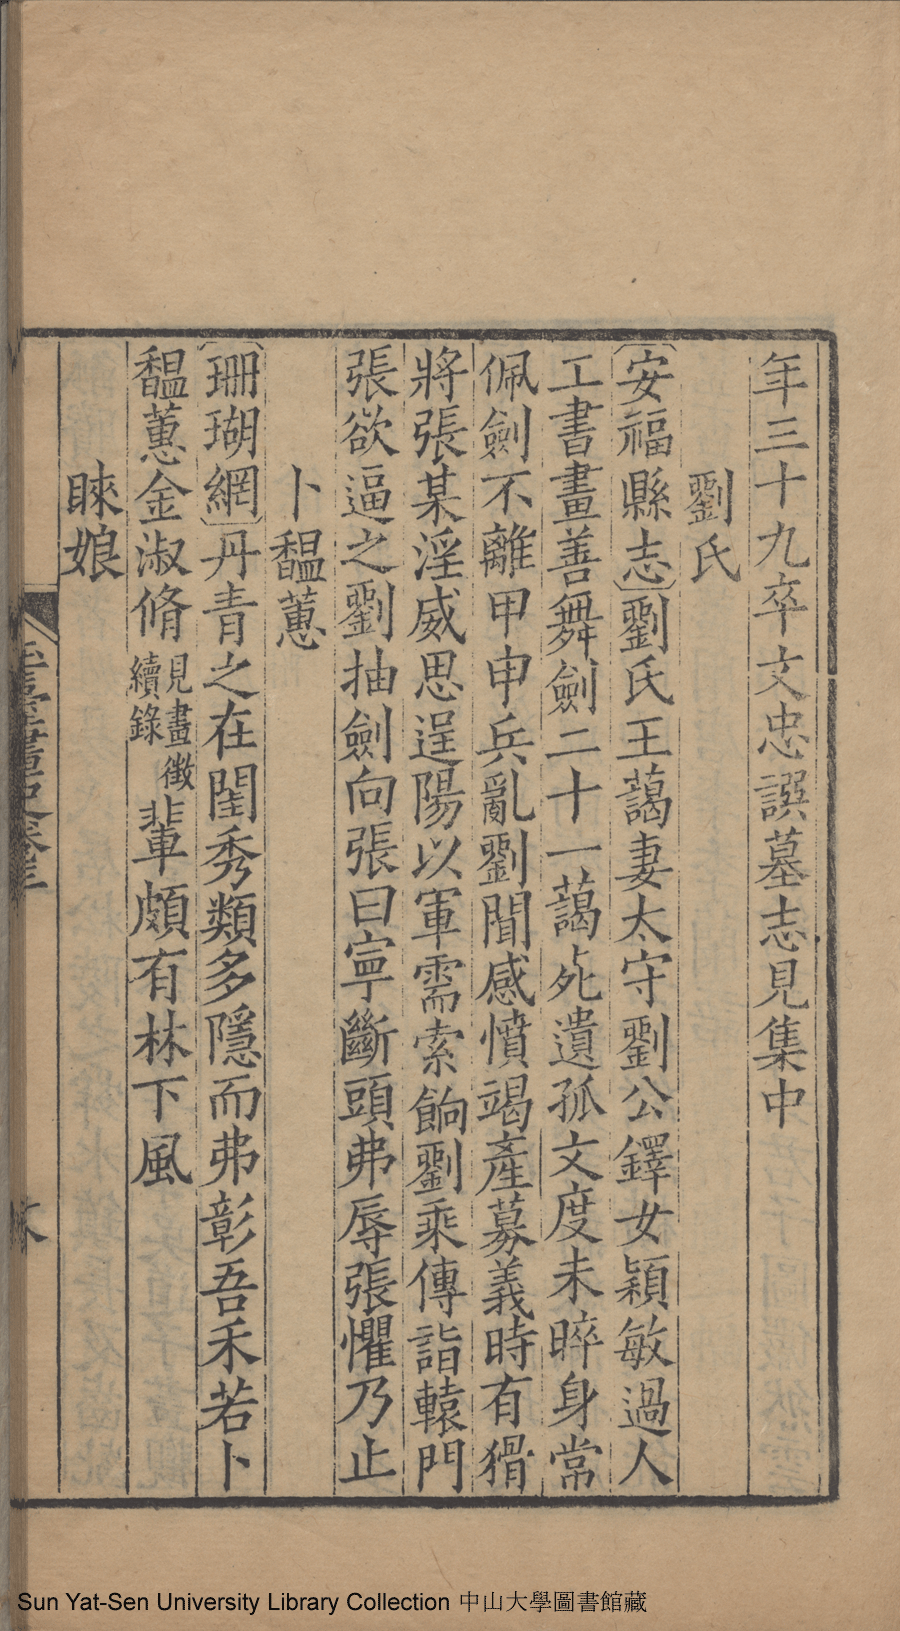 年三十九卒文忠譔墓志見集中
劉氏
〔安福縣志〕劉氏王藹妻太守劉公鐸女穎敏過人
工書畫善舞劍二十一藹死遺孤文度未晬身常
佩劍不離甲申兵亂劉聞感憤竭產募義時有猾
將張某淫威思逞陽以軍需索餉劉乘傳詣轅門
張欲逼之劉抽劍向張曰寧斷頭弗辱張懼乃止
卜馧蕙
〔珊瑚網〕丹青之在閨秀類多隱而弗彰吾禾若卜
馧蕙金淑脩見畫徵續錄輩頗有林下風
睞娘
玉臺畫史卷三
Sun Yat-Sen University Library Collection 中山大學圖書館藏